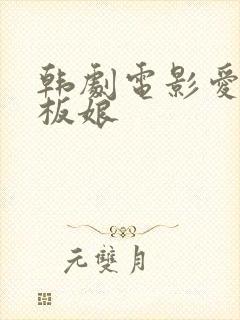 韩劇電影愛
板娘
元雙月